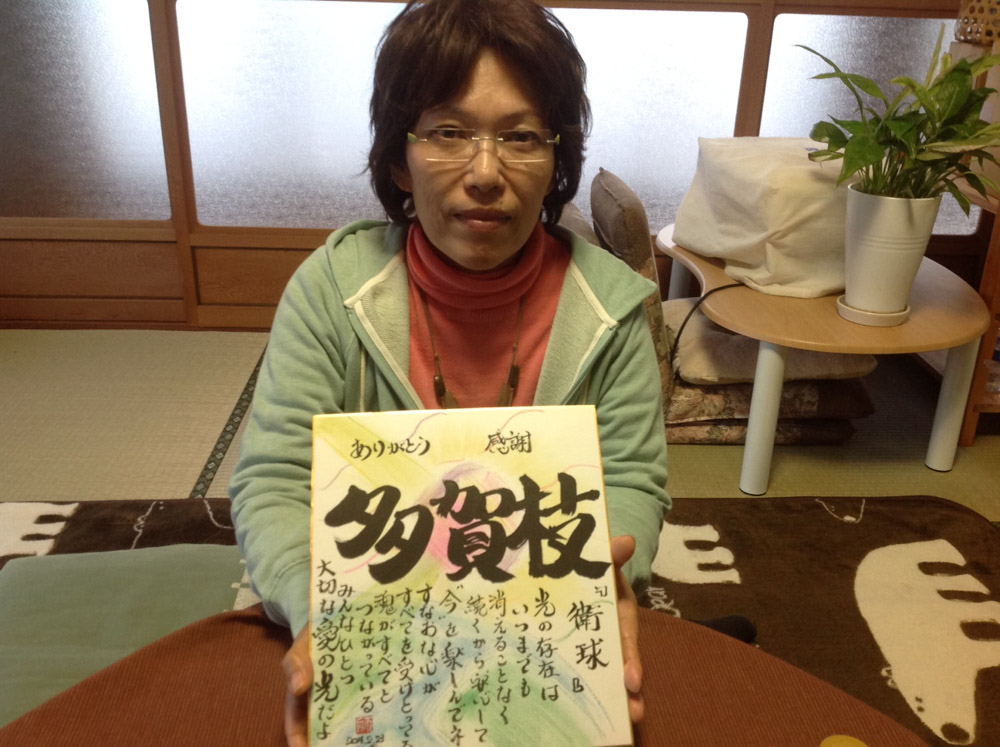 ありがとう 感謝
多賀枝
衛球
光の存在は
いつまでも
消えることなく
続くから安心して
"今"を楽しんでネ
すなおな心が
すべてを受けとってる
魂がすべてと
つながっている
みんなひとつ
大切な愛の光だよ